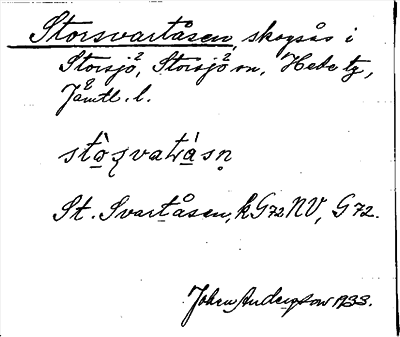 Storsvartåsen, skogsås i
Storsjö, Storsjö sn, Hede tg,
Jämtl. l.
St. Svartåsen, k G72 NV, G 72.
John Anderson 1933.